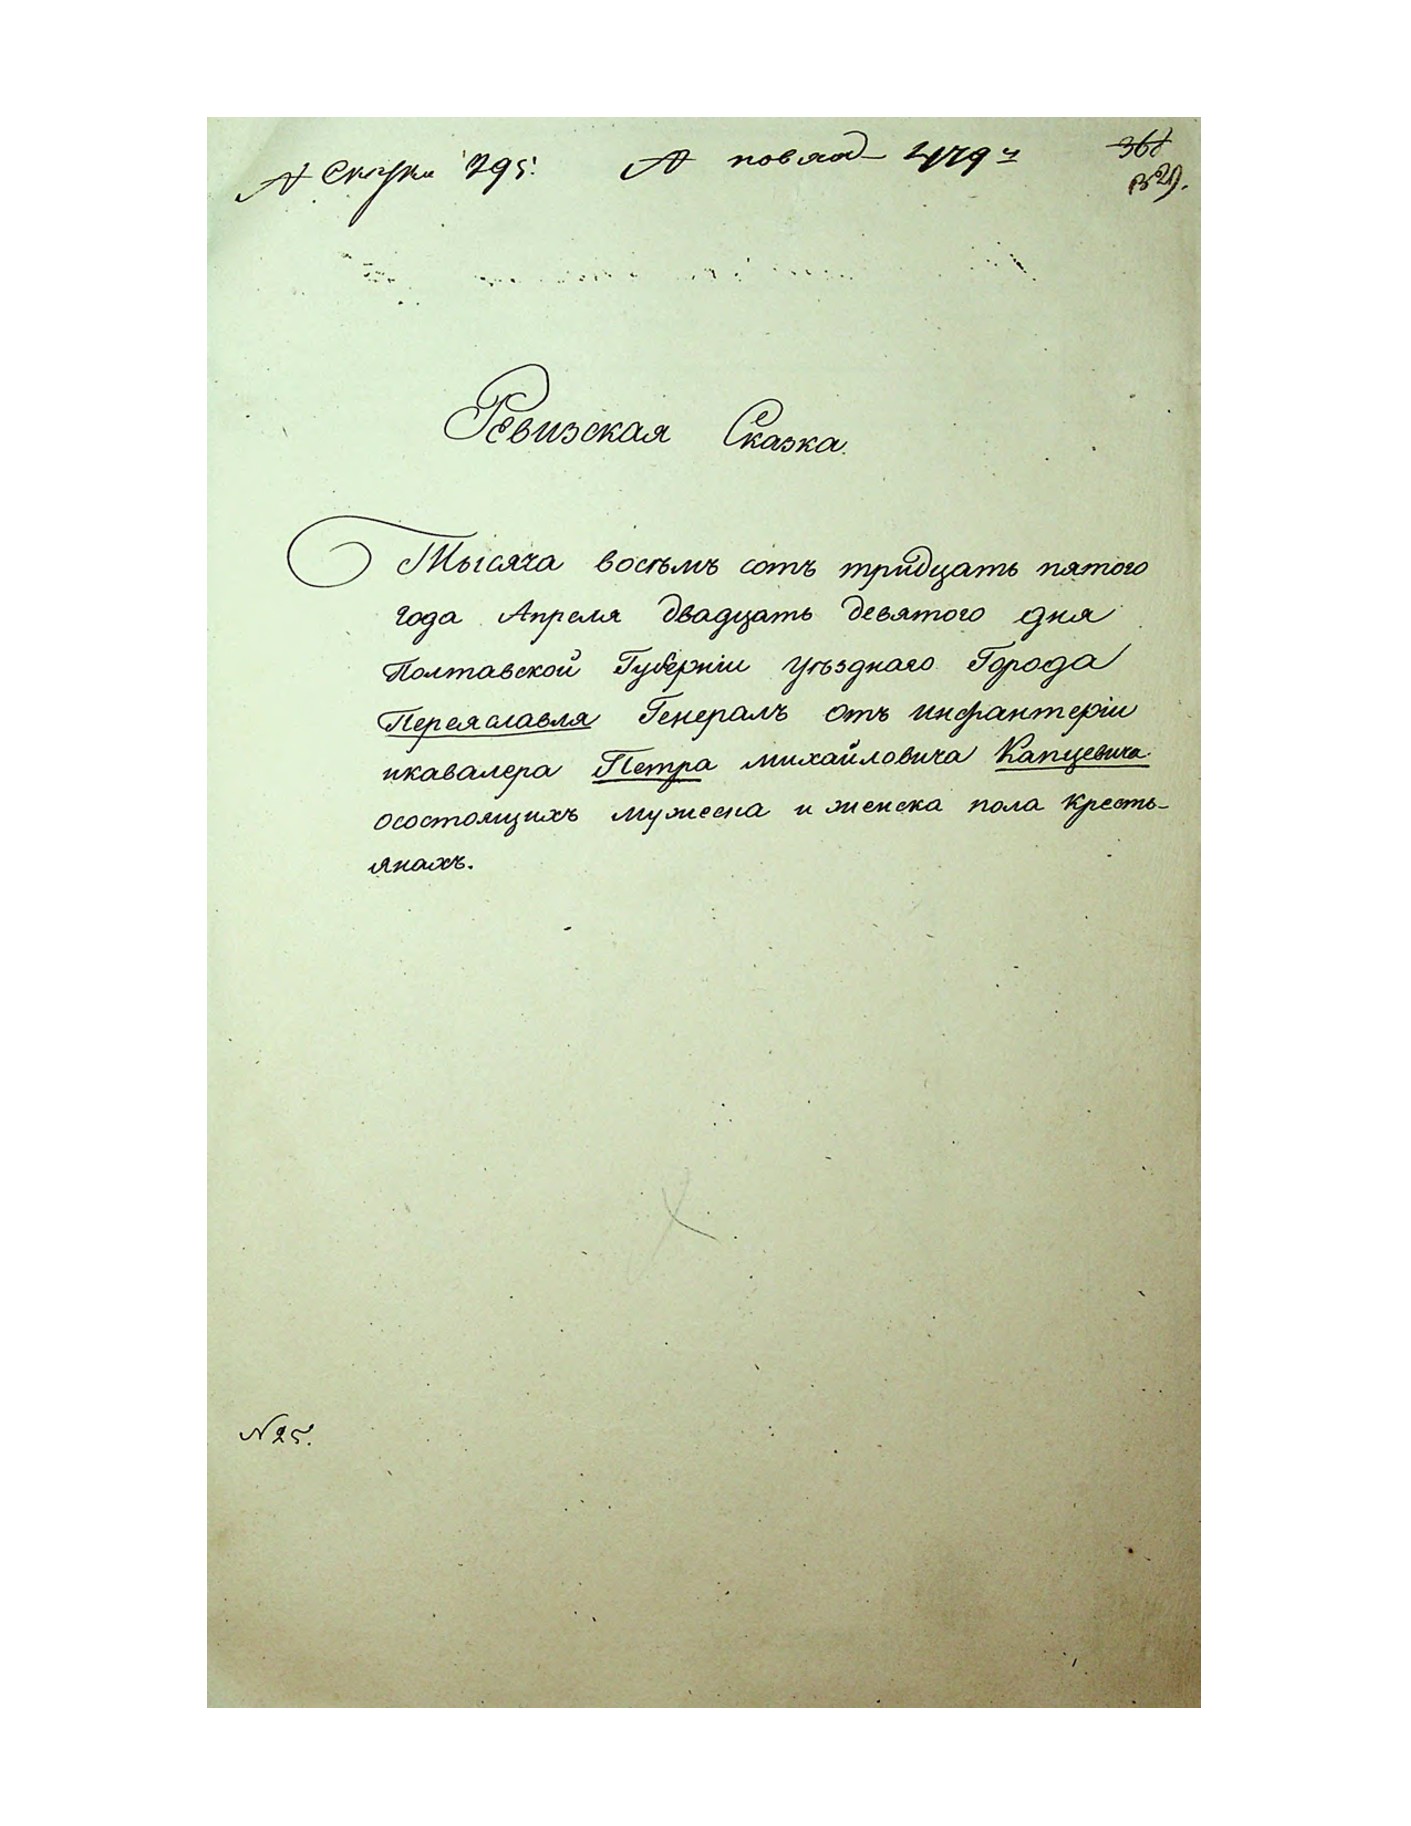 № Сказки 295.
Ревизская Сказка.
Тысяча восѣмъ сотъ тридцать пятого
года Апреля двадцать девятого дня
Полтавской Губерніи уѣзднаго Города
Переяславля Генералъ отъ инфантеріи
икавалера Петра михайловича Капцевича
осостоящихъ мужеска и женска пола кресть-
янахъ.
N 25.